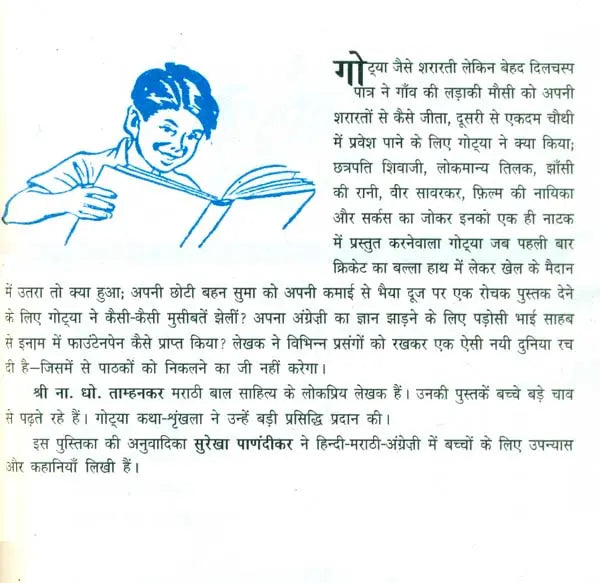 गोट्या जैसे शरारती लेकिन बेहद दिलचस्प
पात्र ने गाँव की लड़ाकी मौसी को अपनी
शरारतों से कैसे जीता, दूसरी से एकदम चौथी
में प्रवेश पाने के लिए गोट्या ने क्या किया;
छत्रपति शिवाजी, लोकमान्य तिलक, झाँसी
की रानी, वीर सावरकर, फ़िल्म की नायिका
और सर्कस का जोकर इनको एक ही नाटक
में प्रस्तुत करनेवाला गोट्या जब पहली बार
क्रिकेट का बल्ला हाथ में लेकर खेल के मैदान
में उतरा तो क्या हुआ; अपनी छोटी बहन सुमा को अपनी कमाई से भैया दूज पर एक रोचक पुस्तक देने
के लिए गोट्या ने कैसी-कैसी मुसीबतें झेलीं? अपना अंग्रेज़ी का ज्ञान झाड़ने के लिए पड़ोसी भाई साहब
से इनाम में फाउंटेनपेन कैसे प्राप्त किया? लेखक ने विभिन्न प्रसंगों को रखकर एक ऐसी नयी दुनिया रच
दी है–जिसमें से पाठकों को निकलने का जी नहीं करेगा।
श्री ना. धो. ताम्हनकर मराठी बाल साहित्य के लोकप्रिय लेखक हैं। उनकी पुस्तकें बच्चे बड़े चाव
से पढ़ते रहे हैं। गोट्या कथा-शृंखला ने उन्हें बड़ी प्रसिद्धि प्रदान की।
इस पुस्तिका की अनुवादिका सुरेखा पाणंदीकर ने हिन्दी-मराठी-अंग्रेज़ी में बच्चों के लिए उपन्यास
और कहानियाँ लिखी हैं।